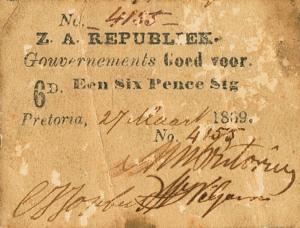 No. 4155
Z. A. REPUBLIEK.
Gouvernements Goed voor.
6D. Een Six Pence Stg
Pretoria, 27 Maart 1869.
No. 4155